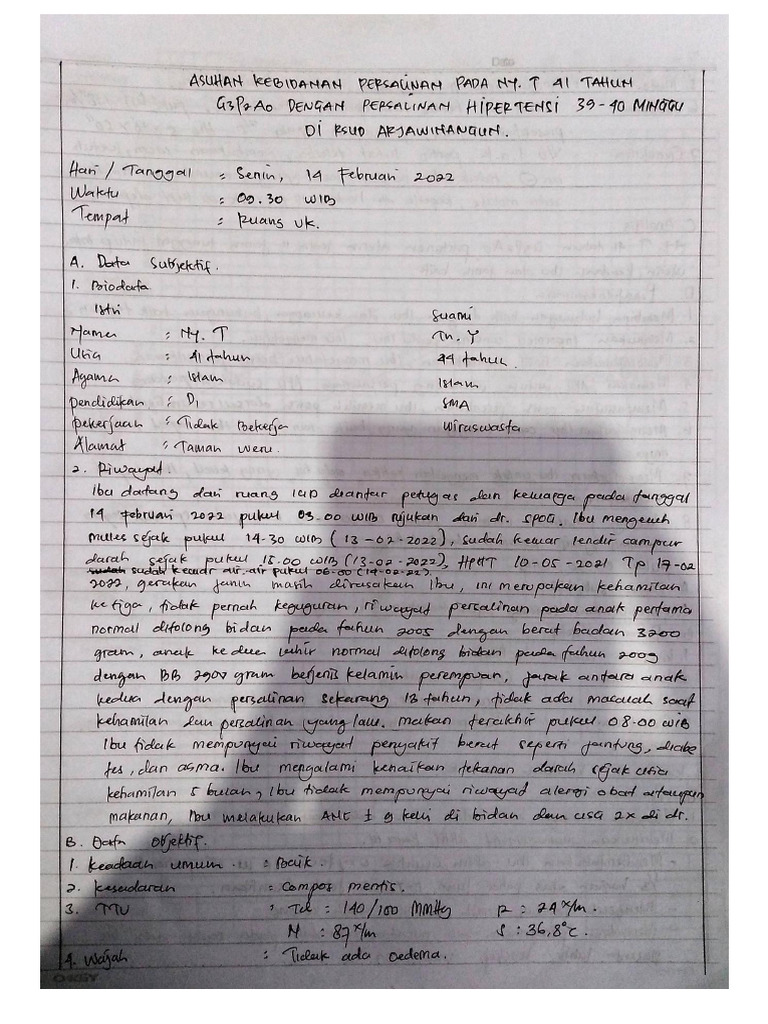 ASUHAN KEBIDANAN PERSALINAN PADA NY. T 41 TAHUN
G3P2A0 DENGAN PERSALINAN HIPERTENSI 39-40 MINGGU
DI RSUD ARJAWINANGUN.
Hari / Tanggal : Senin, 14 Februari 2022
Waktu : 09.30 WIB
Tempat : Ruang VK.
A. Data Subjektif.
1. Biodata
Istri Suami
Nama : Ny. T Tn. Y
Usia : 41 tahun 44 tahun.
Agama : Islam Islam
Pendidikan : D1 SMA
Pekerjaan : Tidak Bekerja Wiraswasta
Alamat : Taman Weru.
2. Riwayat.
Ibu datang dari ruang IGD diantar petugas dan keluarga pada tanggal
14 Februari 2022 pukul 03.00 WIB rujukan dari dr. SPOG. Ibu mengeluh
mulles sejak pukul 14.30 WIB (13-02-2022), sudah keluar lendir campur
darah sejak pukul 15.00 WIB (13-02-2022), HPHT 10-05-2021 TP 17-02
sudah sudah keluar air-air pukul 06.00 (14-02-22).
2022, gerakan janin masih dirasakan Ibu, ini merupakan kehamilan
ketiga, tidak pernah keguguran, riwayat persalinan pada anak pertama
normal ditolong bidan pada tahun 2005 dengan berat badan 3200
gram, anak kedua lahir normal ditolong bidan pada tahun 2009
dengan BB 2900 gram berjenis kelamin perempuan, jarak antara anak
kedua dengan persalinan sekarang 13 tahun, tidak ada masalah saat
kehamilan dan persalinan yang lalu. makan terakhir pukul 08.00 WIB
Ibu tidak mempunyai riwayat penyakit berat seperti jantung, diabe
tes, dan asma. Ibu mengalami kenaikan tekanan darah sejak usia
kehamilan 5 bulan, Ibu tidak mempunyai riwayat alergi obat ataupun
makanan, Ibu melakukan ANC ± 9 kali di bidan dan USG 2x di dr.
B. Data Objektif.
1. Keadaan umum : Baik.
2. Kesadaran : Compos mentis.
3. TTV : Td : 140/100 MMHg R : 24x/m.
N : 87x/m S : 36,8°C.
4. Wajah : Tidak ada Oedema.